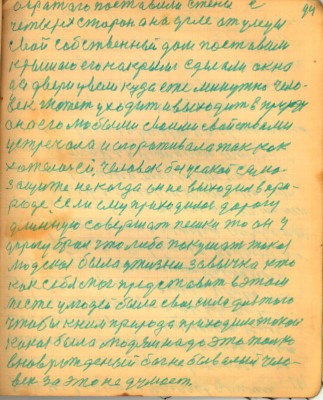 94
обратого поставили стены с
четверех сторон она где от улицы
свой собственный дом поставили
крышою его накрыли сделали окно
а в двери увели куда ежеминутно чело-
век может уходит и выходит в природу
она его любыми своими свойствами
устречала и сопративалась так как
хотелось ей, человек без усякой само-
защите некогда он не выходил в при-
роде, если ему приходилос дорогу
длинную совершат пешки то он у
дорогу брал что либо покушат такая
людская была у жизни завычка кто
как себя мог представит в этом
месте у людей была своя сила для того
чтобы к ним природа приходила такой
какая была людям надо это только
вновь рожденый богне бывалый чело-
век за это не думает